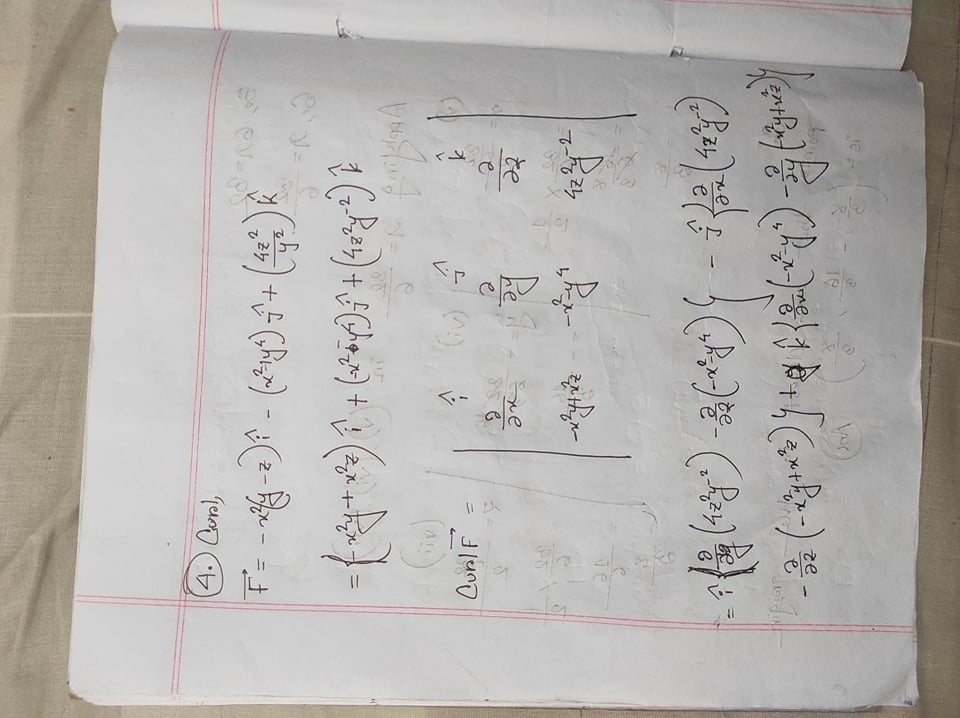 4. Curl,
F⃗ = - x²(y - z) î - (x²+y⁴) ĵ + (4z²/y²) k̂
= (-x²y + x²z) î + (-x² - y⁴) ĵ + (4z²y⁻²) k̂
Curl F⃗ = | î ĵ k̂ |
| ∂/∂x ∂/∂y ∂/∂z |
| -x²y+x²z -x²-y⁴ 4z²y⁻² |
= î {∂/∂y (4z²y⁻²) - ∂/∂z (-x²-y⁴)} - ĵ {∂/∂x (4z²y⁻²)
- ∂/∂z (-x²y+x²z)} + k̂ {∂/∂x (-x²-y⁴) - ∂/∂y (-x²y+x²z)}